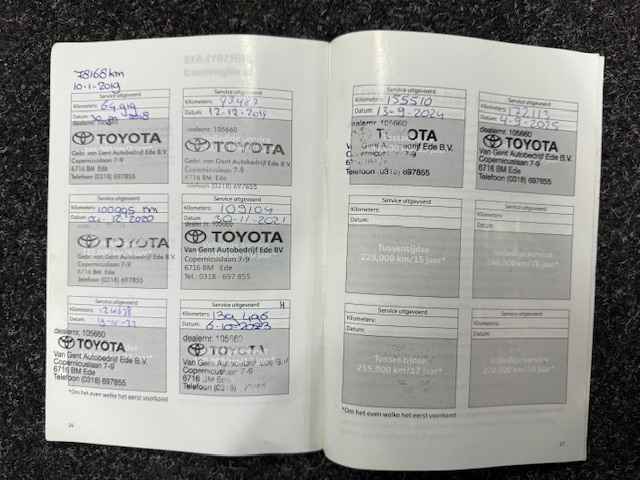 78168 km
10-1-2019
Service uitgevoerd
Kilometers: 64.919
Datum:
dealernr. 105660
TOYOTA
Gebr. van Gent Autobedrijf Ede B.V.
Copernicuslaan 7-9
6716 BM Ede
Telefoon (0318) 697855
Service uitgevoerd
Kilometers:
Datum:
dealernr. 105660
TOYOTA
Gebr. van Gent Autobedrijf Ede B.V.
Copernicuslaan 7-9
6716 BM Ede
Telefoon (0318) 697855
Service uitgevoerd
Kilometers:
Datum:
TOYOTA
Gebr. van Gent Autobedrijf Ede B.V.
Copernicuslaan 7-9
6716 BM Ede
Telefoon (0318) 697855
Service uitgevoerd
Kilometers: 109104
Datum: 30-11-2021
dealer nr. 105660
TOYOTA
Van Gent Autobedrijf Ede BV.
Copernicuslaan 7-9
6716 BM Ede
Tel.: 0318 - 697 855
Service uitgevoerd
Kilometers:
Datum:
dealernr. 105660
TOYOTA
Van Gent Autobedrijf Ede B.V.
Copernicuslaan 7-9
6716 BM Ede
Telefoon (0318) 697855
H
Service uitgevoerd
Kilometers:
Datum: 6-10-2023
dealernr. 105660
TOYOTA
Van Gent Autobedrijf Ede B.V.
Copernicuslaan 7-9
6716 BM Ede
Telefoon (0318)
*Om het even welke het eerst voorkomt
26
Service uitgevoerd
Kilometers: 155510
Datum: 13-9-2024
dealernr. 105660
TOYOTA
Van Gent Autobedrijf Ede B.V.
Copernicuslaan 7-9
6716 BM Ede
Telefoon (0318) 697855
Service uitgevoerd
Kilometers:
Datum: 4-9-2025
dealernr. 105660
TOYOTA
Van Gent Autobedrijf Ede B.V.
Copernicuslaan 7-9
6716 BM Ede
Telefoon (0318) 697855
Service uitgevoerd
Kilometers:
Datum:
Tussentijdse
225,000 km/15 jaar*
Service uitgevoerd
Kilometers:
Datum:
Service uitgevoerd
Kilometers:
Datum:
Tussentijdse
255,000 km/17 jaar*
Service uitgevoerd
Kilometers:
Datum:
*Om het even welke het eerst voorkomt
27